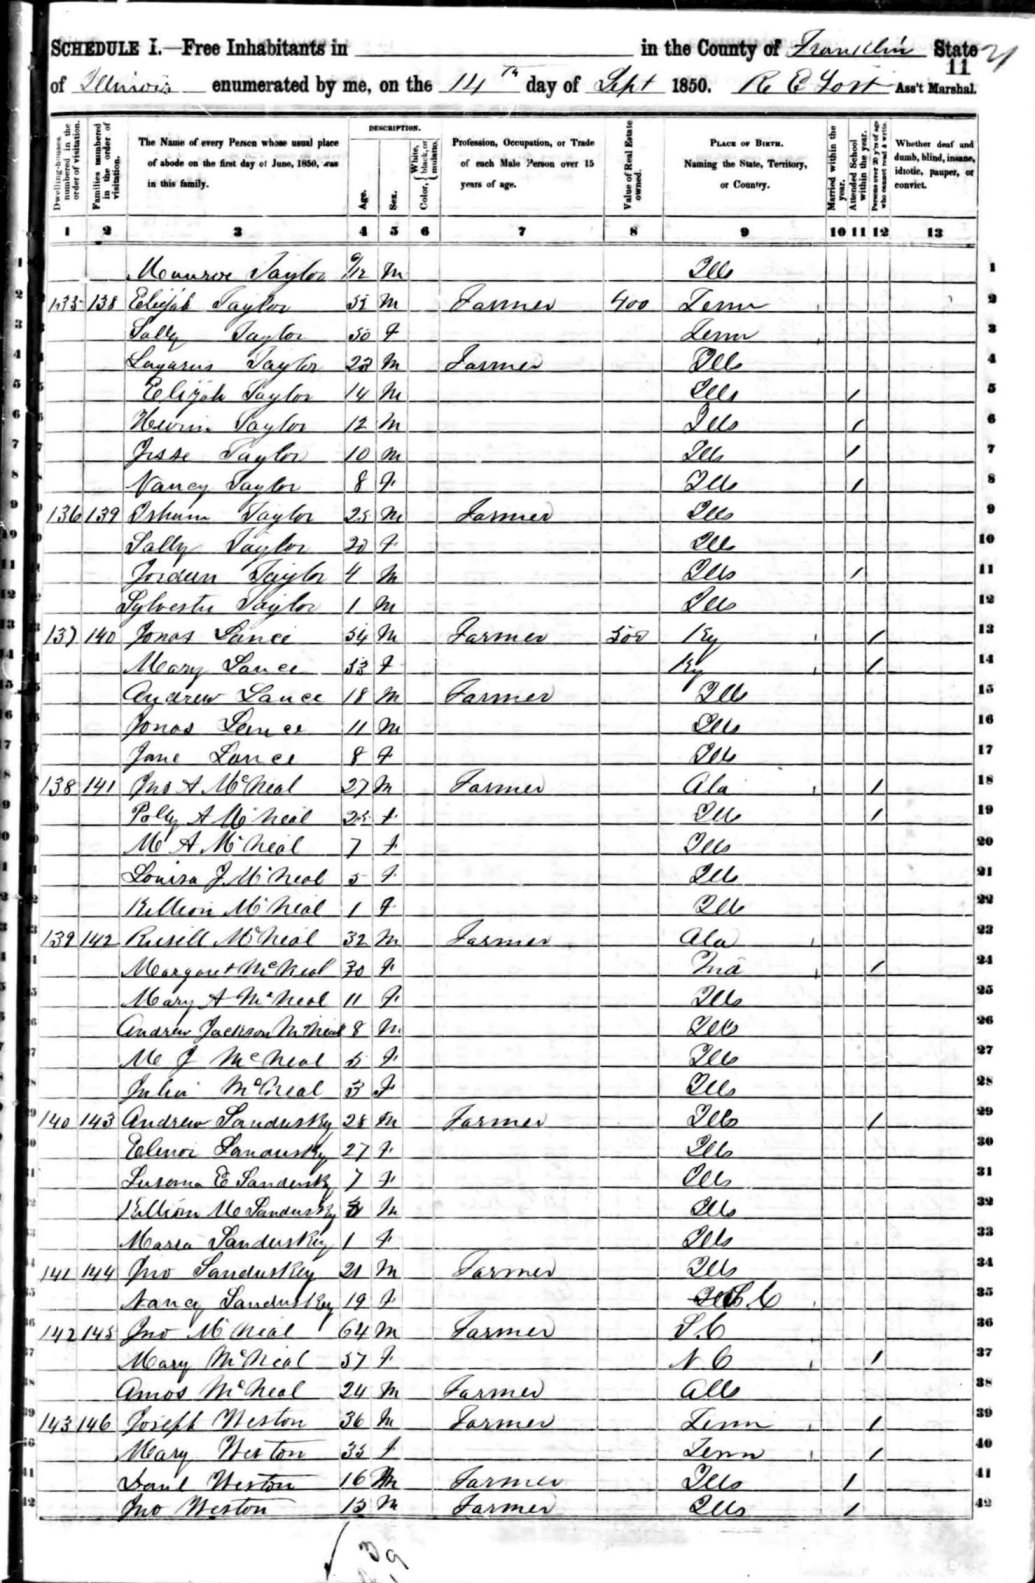 SCHEDULE I.—Free Inhabitants in in the County of Franklin State
11 21
of Illinois enumerated by me, on the 14th day of Sept 1850. R E Yost Ass't Marshal.
Dwelling-houses numbered in the order of visitation.
Families numbered in the order of visitation.
The Name of every Person whose usual place of abode on the first day of June, 1850, was in this family.
DESCRIPTION.
Age.
Sex.
Color, White, black, or mulatto.
Profession, Occupation, or Trade of each Male Person over 15 years of age.
Value of Real Estate owned.
PLACE OF BIRTH. Naming the State, Territory, or Country.
Married within the year.
Attended School within the year.
Persons over 20 y'rs of age who cannot read & write.
Whether deaf and dumb, blind, insane, idiotic, pauper, or convict.
1 2 3 4 5 6 7 8 9 10 11 12 13
1 Munroe Taylor 9/12 M Ills 1
2 135 138 Elijah Taylor M Farmer 400 Tenn 2
3 Sally Taylor 50 F Tenn 3
4 Lazarus Taylor 23 M Farmer Ills 4
5 Elijah Taylor 14 M Ills / 5
6 Taylor 12 M Ills / 6
7 Jesse Taylor 10 M Ills / 7
8 Nancy Taylor 8 F Ills / 8
9 136 139 Isham Taylor 25 M Farmer Ills 9
10 Sally Taylor F Ills 10
11 Jordan Taylor 4 M Ills / 11
12 Sylvester Taylor 1 M Ills 12
13 137 140 Jonas Lance 54 M Farmer 500 Ky / 13
14 Mary Lance 53 F Ky / 14
15 Andrew Lance 18 M Farmer Ills 15
16 Jonas Lance 11 M Ills 16
17 Jane Lance 8 F Ills 17
138 141 Jno A McNeal 27 M Farmer Ala / 18
Polly A McNeal 25 F Ills / 19
M A McNeal 7 F Ills 20
Louisa J McNeal 5 F Ills 21
Killion McNeal 1 F Ills 22
139 142 Russell McNeal 32 M Farmer Ala 23
Margaret McNeal 30 F Ind / 24
Mary A McNeal 11 F Ills 25
Andrew Jackson McNeal 8 M Ills 26
M J McNeal 5 F Ills 27
Julia McNeal 3 F Ills 28
140 143 Andrew Sandusky 28 M Farmer Ills / 29
Elenor Sandusky 27 F Ills 30
E Sandusky 7 F Ills 31
Killion M Sandusky M Ills 32
Maria Sandusky 1 F Ills 33
141 144 Jno Sanduskey 21 M Farmer Ills 34
Nancy Sanduskey 19 F S C 35
142 145 Jno McNeal 64 M Farmer S. C 36
Mary McNeal 57 F N C / 37
Amos McNeal 24 M Farmer 38
143 146 Joseph Weston 36 M Farmer Tenn / 39
Mary Weston 35 F Tenn / 40
Danl Weston 16 M Farmer Ills / 41
Jno Weston 15 M Farmer Ills / 42
3
19